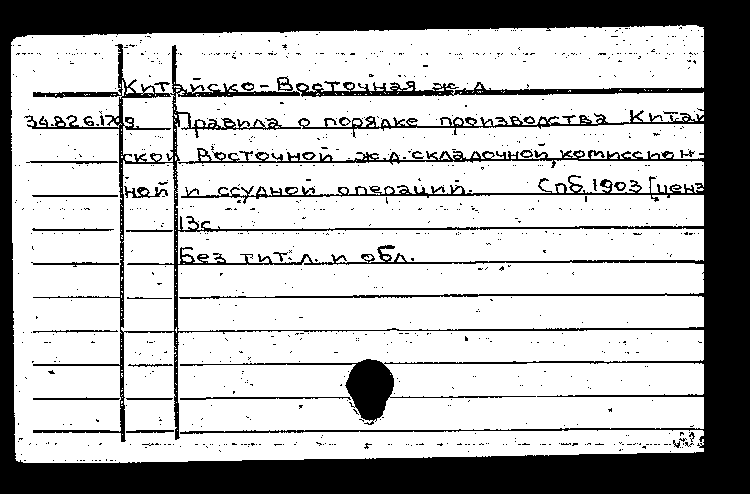 Китайско-Восточная ж.д.
34.82.6.1709. Правила о порядке производства Китай
ской Восточной ж.д. складочной, комиссион-
ной и ссудной операций. Спб, 1903 [ценз
13с.
Без тит.л. и обл.